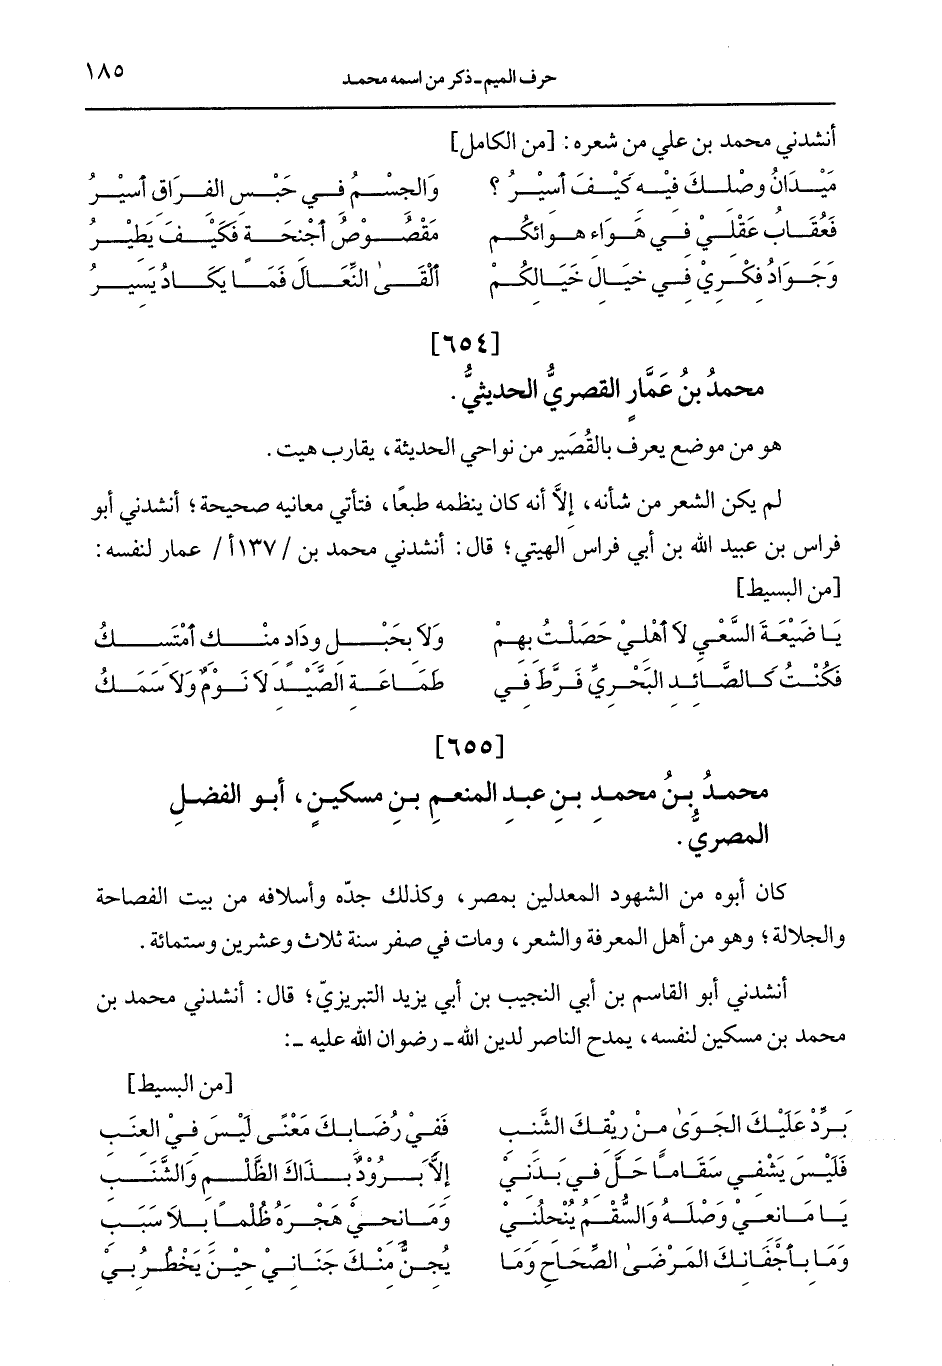 حرف الميم ـ ذكر من اسمه محمد ١٨٥
أنشدني محمد بن علي من شعره: [من الكامل]
مَيْدَانُ وصْلِكَ فيْهِ كَيْفَ أَسِيْرُ؟ وَالجِسْمُ في حَبْسِ الفرَاقِ أَسيْرُ
فَعُقَابُ عَقْلِيْ في هَوَاءِ هوَائِكُم مَقْصُوصُ أَجْنحَةٍ فَكَيْفَ يَطيْرُ
وَجَوَادُ فكْرِيْ في خيَالِ خَيَالكُمْ أَلْقَىٰ النِّعَالَ فَمَا يكَادُ يَسيرُ
[٦٥٤]
محمدُ بنُ عَمَّارٍ القصريُّ الحديثيُّ.
هو من موضع يعرف بالقُصَير من نواحي الحديثة، يقارب هيت.
لم يكن الشعر من شأنه، إلاَّ أنه كان ينظمه طبعًا، فتأتي معانيه صحيحة؛ أنشدني أبو
فراس بن عبيد الله بن أبي فراس الهيتي؛ قال: أنشدني محمد بن /١٣٧أ/ عمار لنفسِه:
[من البسيط]
يَا ضَيْعَةَ السَّعْي لاَ أَهْليْ حَصَلْتُ بهِمْ وَلاَ بحَبْلِ ودَادٍ منْكَ أَمْتَسِكُ
فَكُنْتُ كَالصَّائدِ البَحْرِيِّ فَرَّطَ فِي طَمَاعَةِ الصَّيْدِ لاَ نَوْمٌ وَلاَ سَمَكُ
[٦٥٥]
محمدُ بنُ محمدِ بنِ عبدِ المنعمِ بنِ مسكينٍ، أبو الفضلِ
المصريُّ.
كان أبوه من الشهود المعدلين بمصر، وكذلك جدّه وأسلافه من بيت الفصاحة
والجلالة؛ وهو من أهل المعرفة والشعر، ومات في صفر سنة ثلاث وعشرين وستمائة.
أنشدني أبو القاسم بن أبي النجيب بن أبي يزيد التبريزيّ؛ قال: أنشدني محمد بن
محمد بن مسكين لنفسه، يمدح الناصر لدين الله ـ رضوان الله عليه ـ:
[من البسيط]
بَرِّدْ عَلَيْكَ الجَوَىٰ مِنْ رِيْقكَ الشَّنبِ فَفيْ رُضَابكَ مَعْنًى لَيْسَ فيْ العنَبِ
فَلَيْسَ يَشْفي سَقَاماً حَلَّ في بَدَنيْ إلاَّ بَرُوْدٌ بذَاكَ الظَّلْمِ وَالشَّنَبِ
يَا مَانعيْ وَصْلَهُ وَالسُّقْمُ يُنْحلُنيْ وَمَانحيْ هَجْرَهُ ظُلْمًا بلاَ سَبَبِ
وَمَا بأَجْفَانكَ المَرْضَىٰ الصِّحَاحِ وَمَا يُجنُّ منْكَ جَنَانيْ حيْنَ يَخْطُرُ بيْ